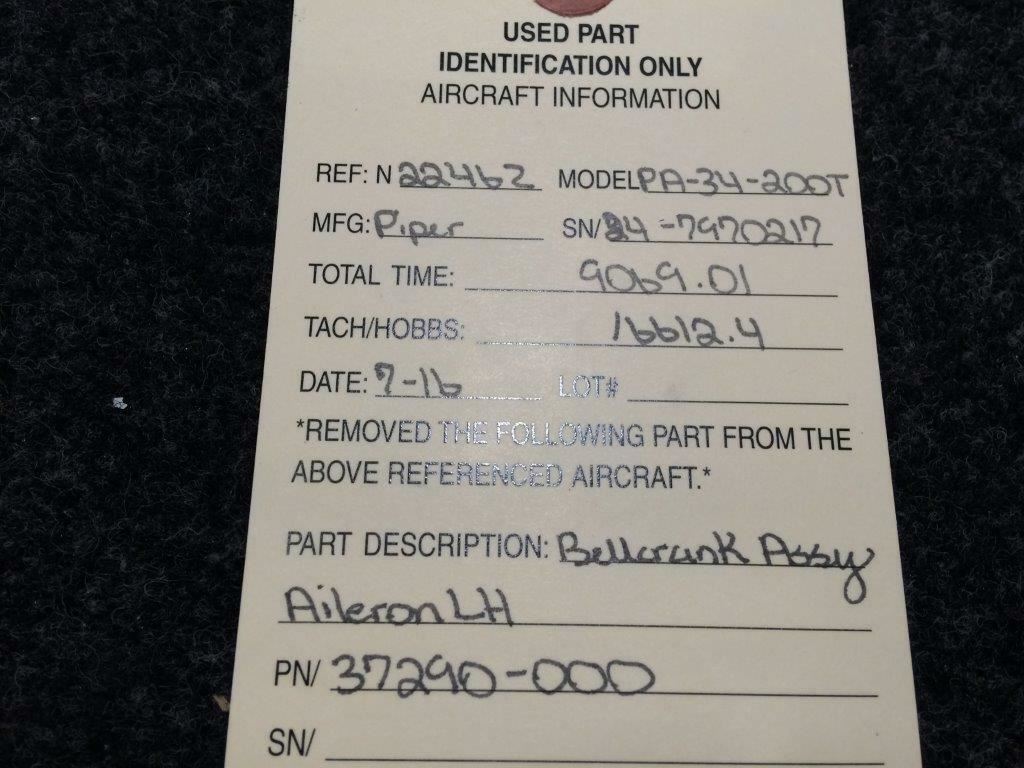 USED PART
IDENTIFICATION ONLY
AIRCRAFT INFORMATION
REF: N 22462 MODEL PA-34-200T
MFG: Piper SN/ 34-7970217
TOTAL TIME: 9069.01
TACH/HOBBS: 16612.4
DATE: 7-16 LOT#
*REMOVED THE FOLLOWING PART FROM THE
ABOVE REFERENCED AIRCRAFT.*
PART DESCRIPTION: Bellcrank Assy
Aileron LH
PN/ 37290-000
SN/